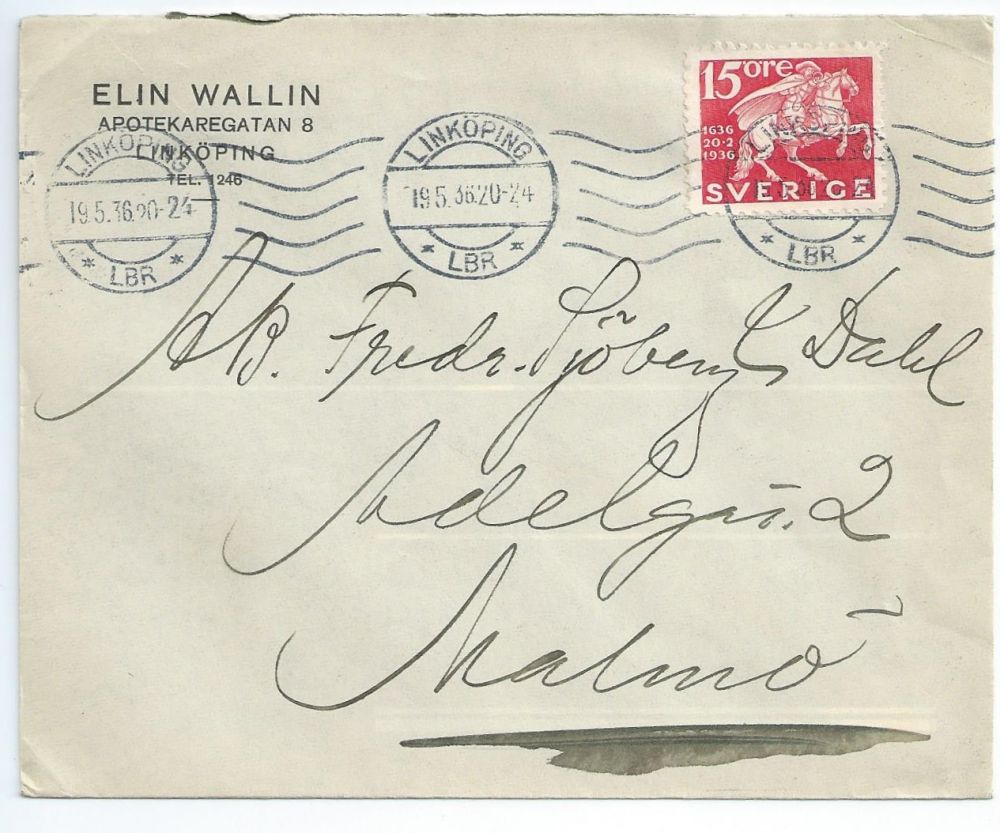 ELIN WALLIN
APOTEKAREGATAN 8
LINKÖPING
TEL. 1246
LINKÖPING
19.5.36.20-24
* LBR *
LINKÖPING
19.5.36.20-24
* LBR *
15 öre
1636
20·2
1936
SVERIGE
* LBR *
AB. Fredr. Sjöberg & Dahl
Adelga. 2
Malmö